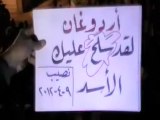 أردوغان
لقد سلخ عليك
الأسد
نصيب
٢٠١٢-٤-٩